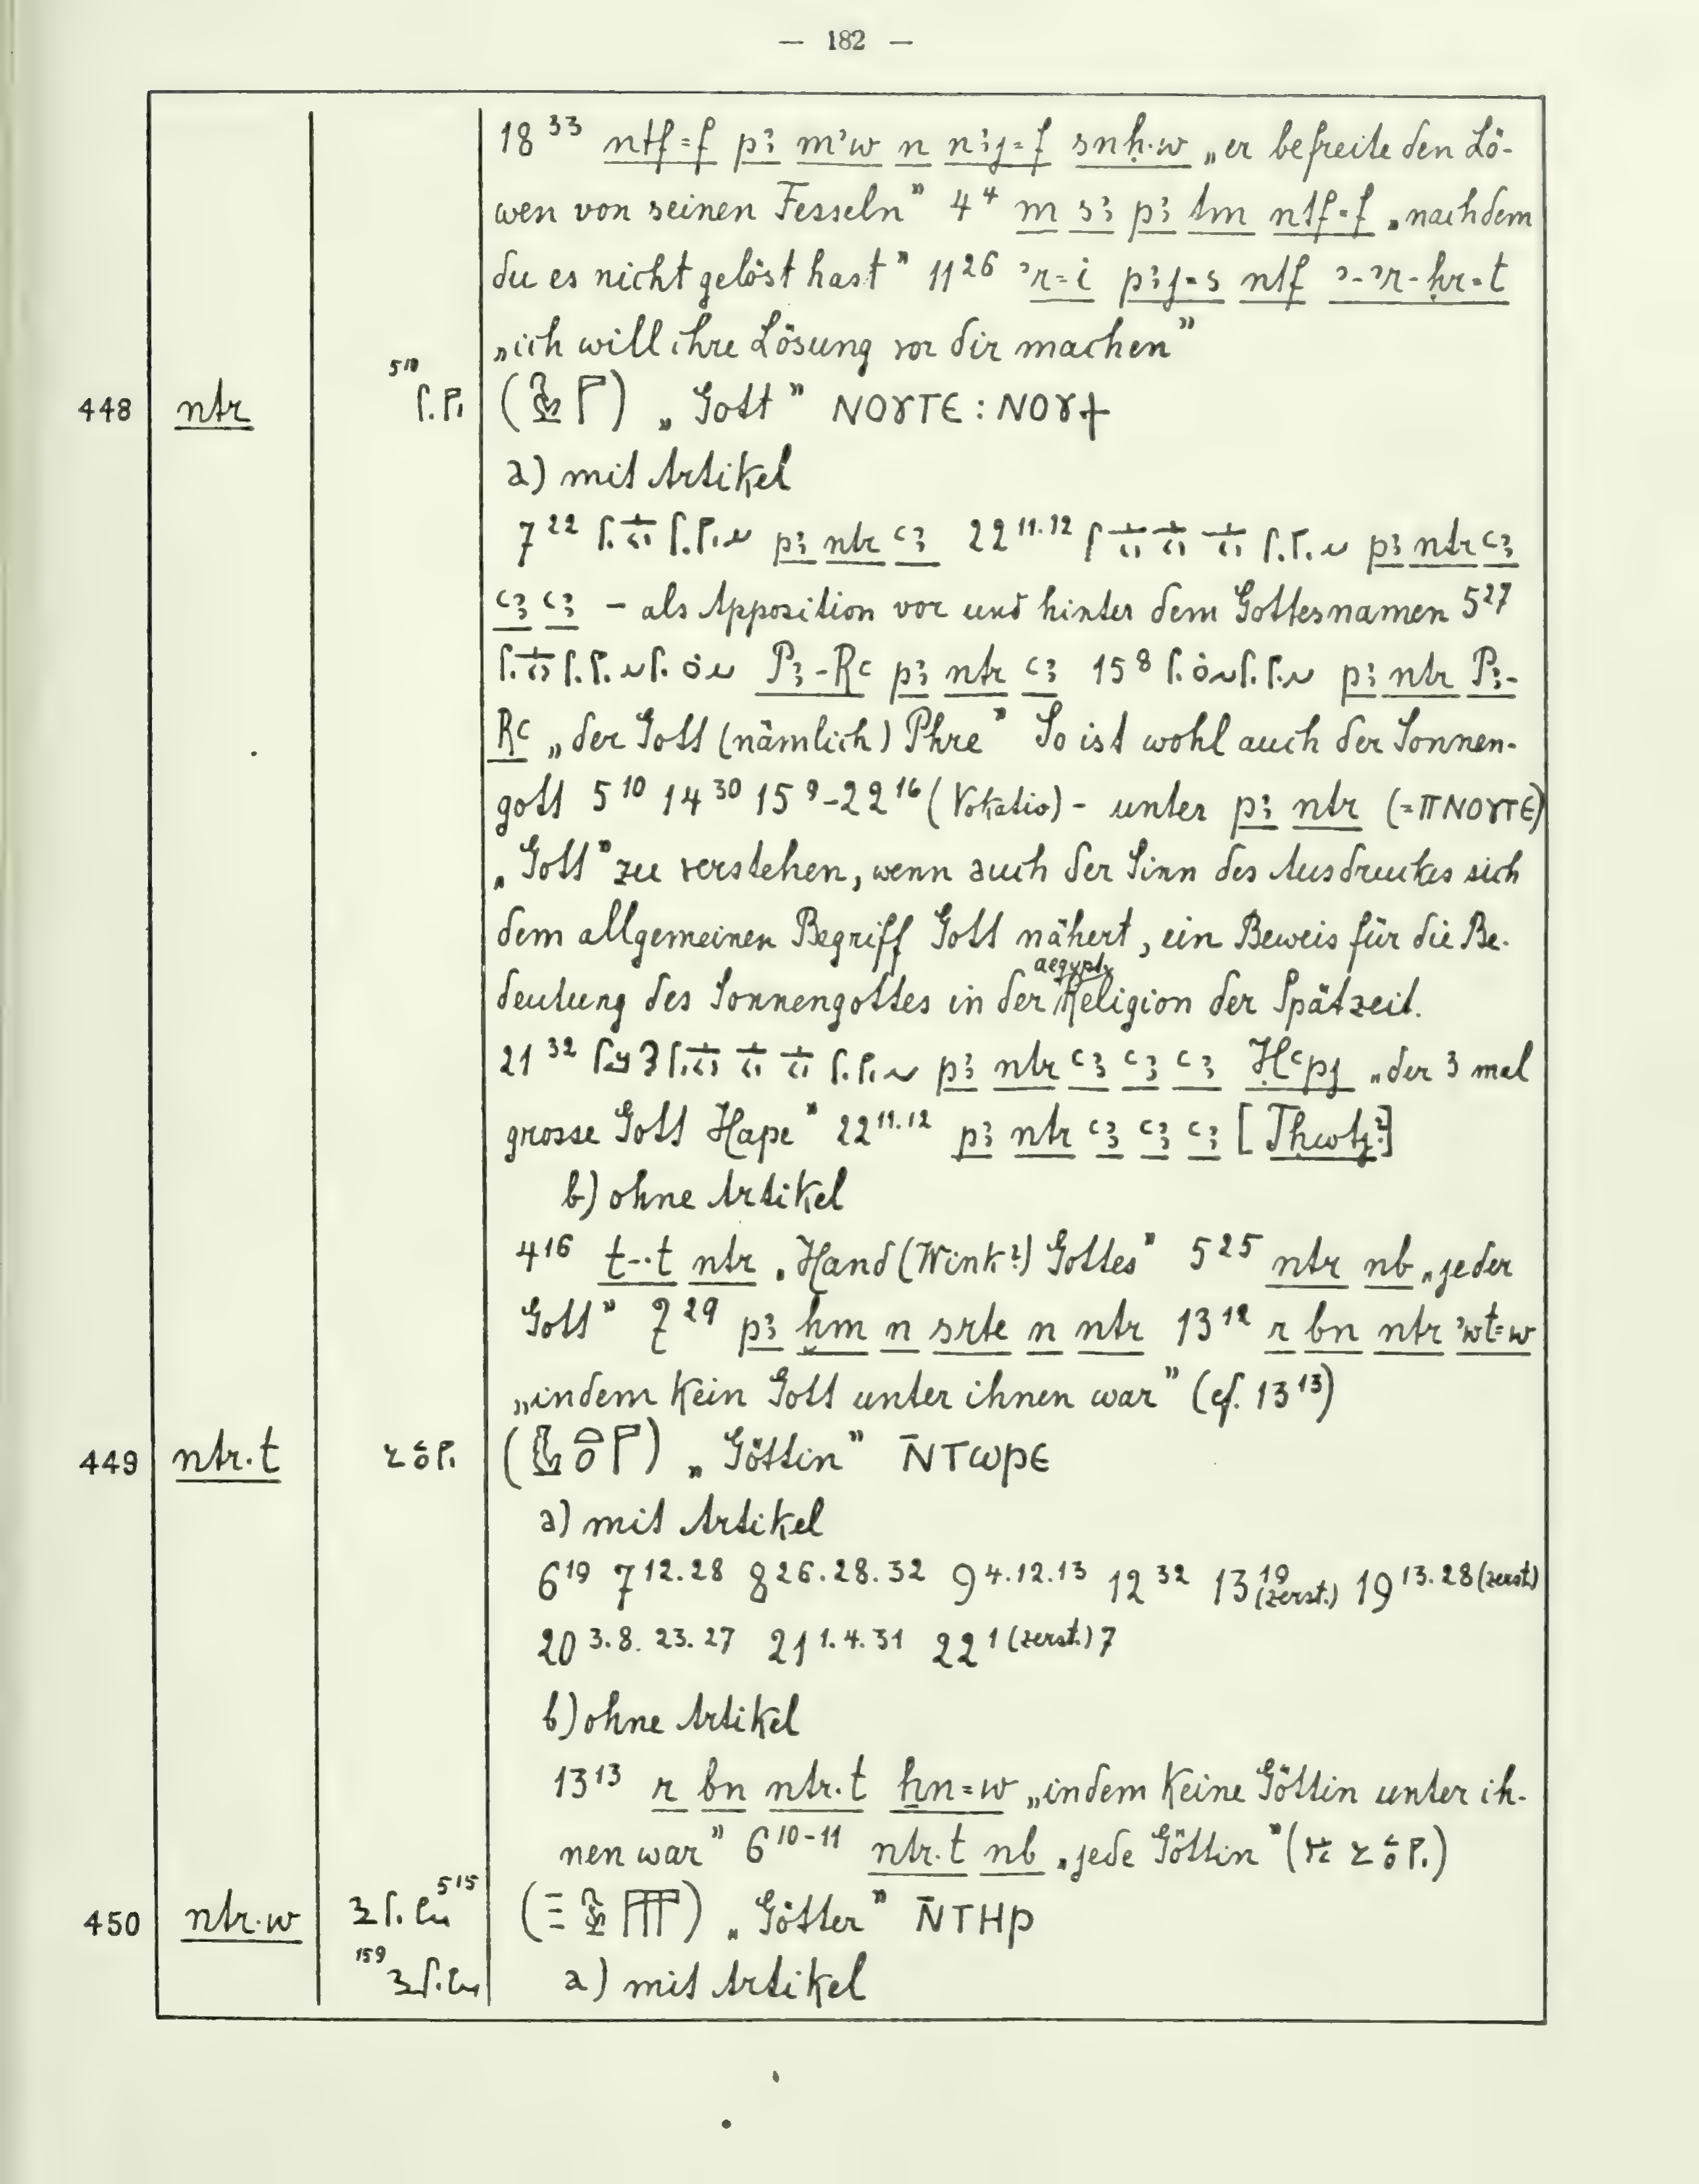 — 182 —
18 ³³ ntf=f pꜣ mʾw n nꜣj=f snḥ.w „er befreite den Lö-
wen von seinen Fesseln" 4 ⁴ m sꜣ pꜣ tm ntf=f „nachdem
du es nicht gelöst hast" 11 ²⁶ ʾr=i pꜣj=s ntf ʾ-ʾr-ḥr=t
„ich will ihre Lösung vor dir machen"
448 ntr ( ) „Gott" ⲚⲞⲨⲦⲈ : ⲚⲞⲨϮ
a) mit Artikel
7 ²² pꜣ ntr ꜥꜣ 22 ¹¹·¹² pꜣ ntr ꜥꜣ
ꜥꜣ ꜥꜣ – als Apposition vor und hinter dem Gottesnamen 5 ²⁷
Pꜣ-Rꜥ pꜣ ntr ꜥꜣ 15 ⁸ pꜣ ntr Pꜣ-
Rꜥ „der Gott (nämlich) Phre" So ist wohl auch der Sonnen-
gott 5 ¹⁰ 14 ³⁰ 15 ⁹ – 22 ¹⁶ (Vokativ) – unter pꜣ ntr (= ⲠⲚⲞⲨⲦⲈ)
„Gott" zu verstehen, wenn auch der Sinn des Ausdruckes sich
dem allgemeinen Begriff Gott nähert, ein Beweis für die Be-
deutung des Sonnengottes in der aegypt. Religion der Spätzeit.
21 ³² pꜣ ntr ꜥꜣ ꜥꜣ ꜥꜣ Ḥꜥpj „der 3 mal
grosse Gott Hape" 22 ¹¹·¹² pꜣ ntr ꜥꜣ ꜥꜣ ꜥꜣ [Tḥwtj?]
b) ohne Artikel
4 ¹⁶ t-.t ntr „Hand (Wink?) Gottes" 5 ²⁵ ntr nb „jeder
Gott" 7 ²⁹ pꜣ ḫm n srte n ntr 13 ¹² r bn ntr ʾwt=w
„indem kein Gott unter ihnen war" (cf. 13 ¹³)
449 ntr.t ( ) „Göttin" Ⲛ̄ⲦⲰⲢⲈ
a) mit Artikel
6 ¹⁹ 7 ¹²·²⁸ 8 ²⁶·²⁸·³² 9 ⁴·¹²·¹³ 12 ³² 13 ¹⁹ (zerst.) 19 ¹³·²⁸ (zerst.)
20 ³·⁸·²³·²⁷ 21 ¹·⁴·³¹ 22 ¹ (zerst.) 7
b) ohne Artikel
13 ¹³ r bn ntr.t ẖn=w „indem keine Göttin unter ih-
nen war" 6 ¹⁰⁻¹¹ ntr.t nb „jede Göttin" ( )
450 ntr.w 5 15 ( ) „Götter" Ⲛ̄ⲦⲎⲢ
159 a) mit Artikel